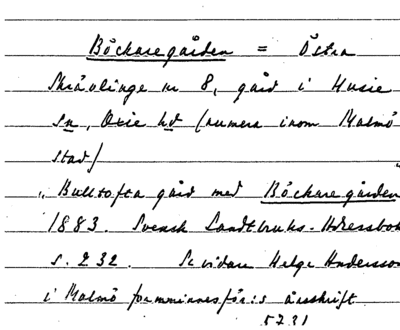 Böckaregården = Östra
Skrävlinge nr 8, gård i Husie
sn, Oxie hd (numera inom Malmö
stad)
"Bulltofta gård med Böckaregården"
1883. Svensk Landtbruks-Adressbok
s. 232. Se vidare Helge Andersson
i Malmö fornminnesför:s årsskrift
5731